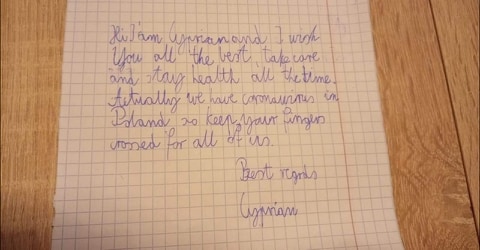 Hi I am Cyprian and I wish
You all the best, take care
and stay health all the time.
Actually we have coronavirus in
Poland so keep your fingers
crossed for all of us.
Best regads
Cyprian